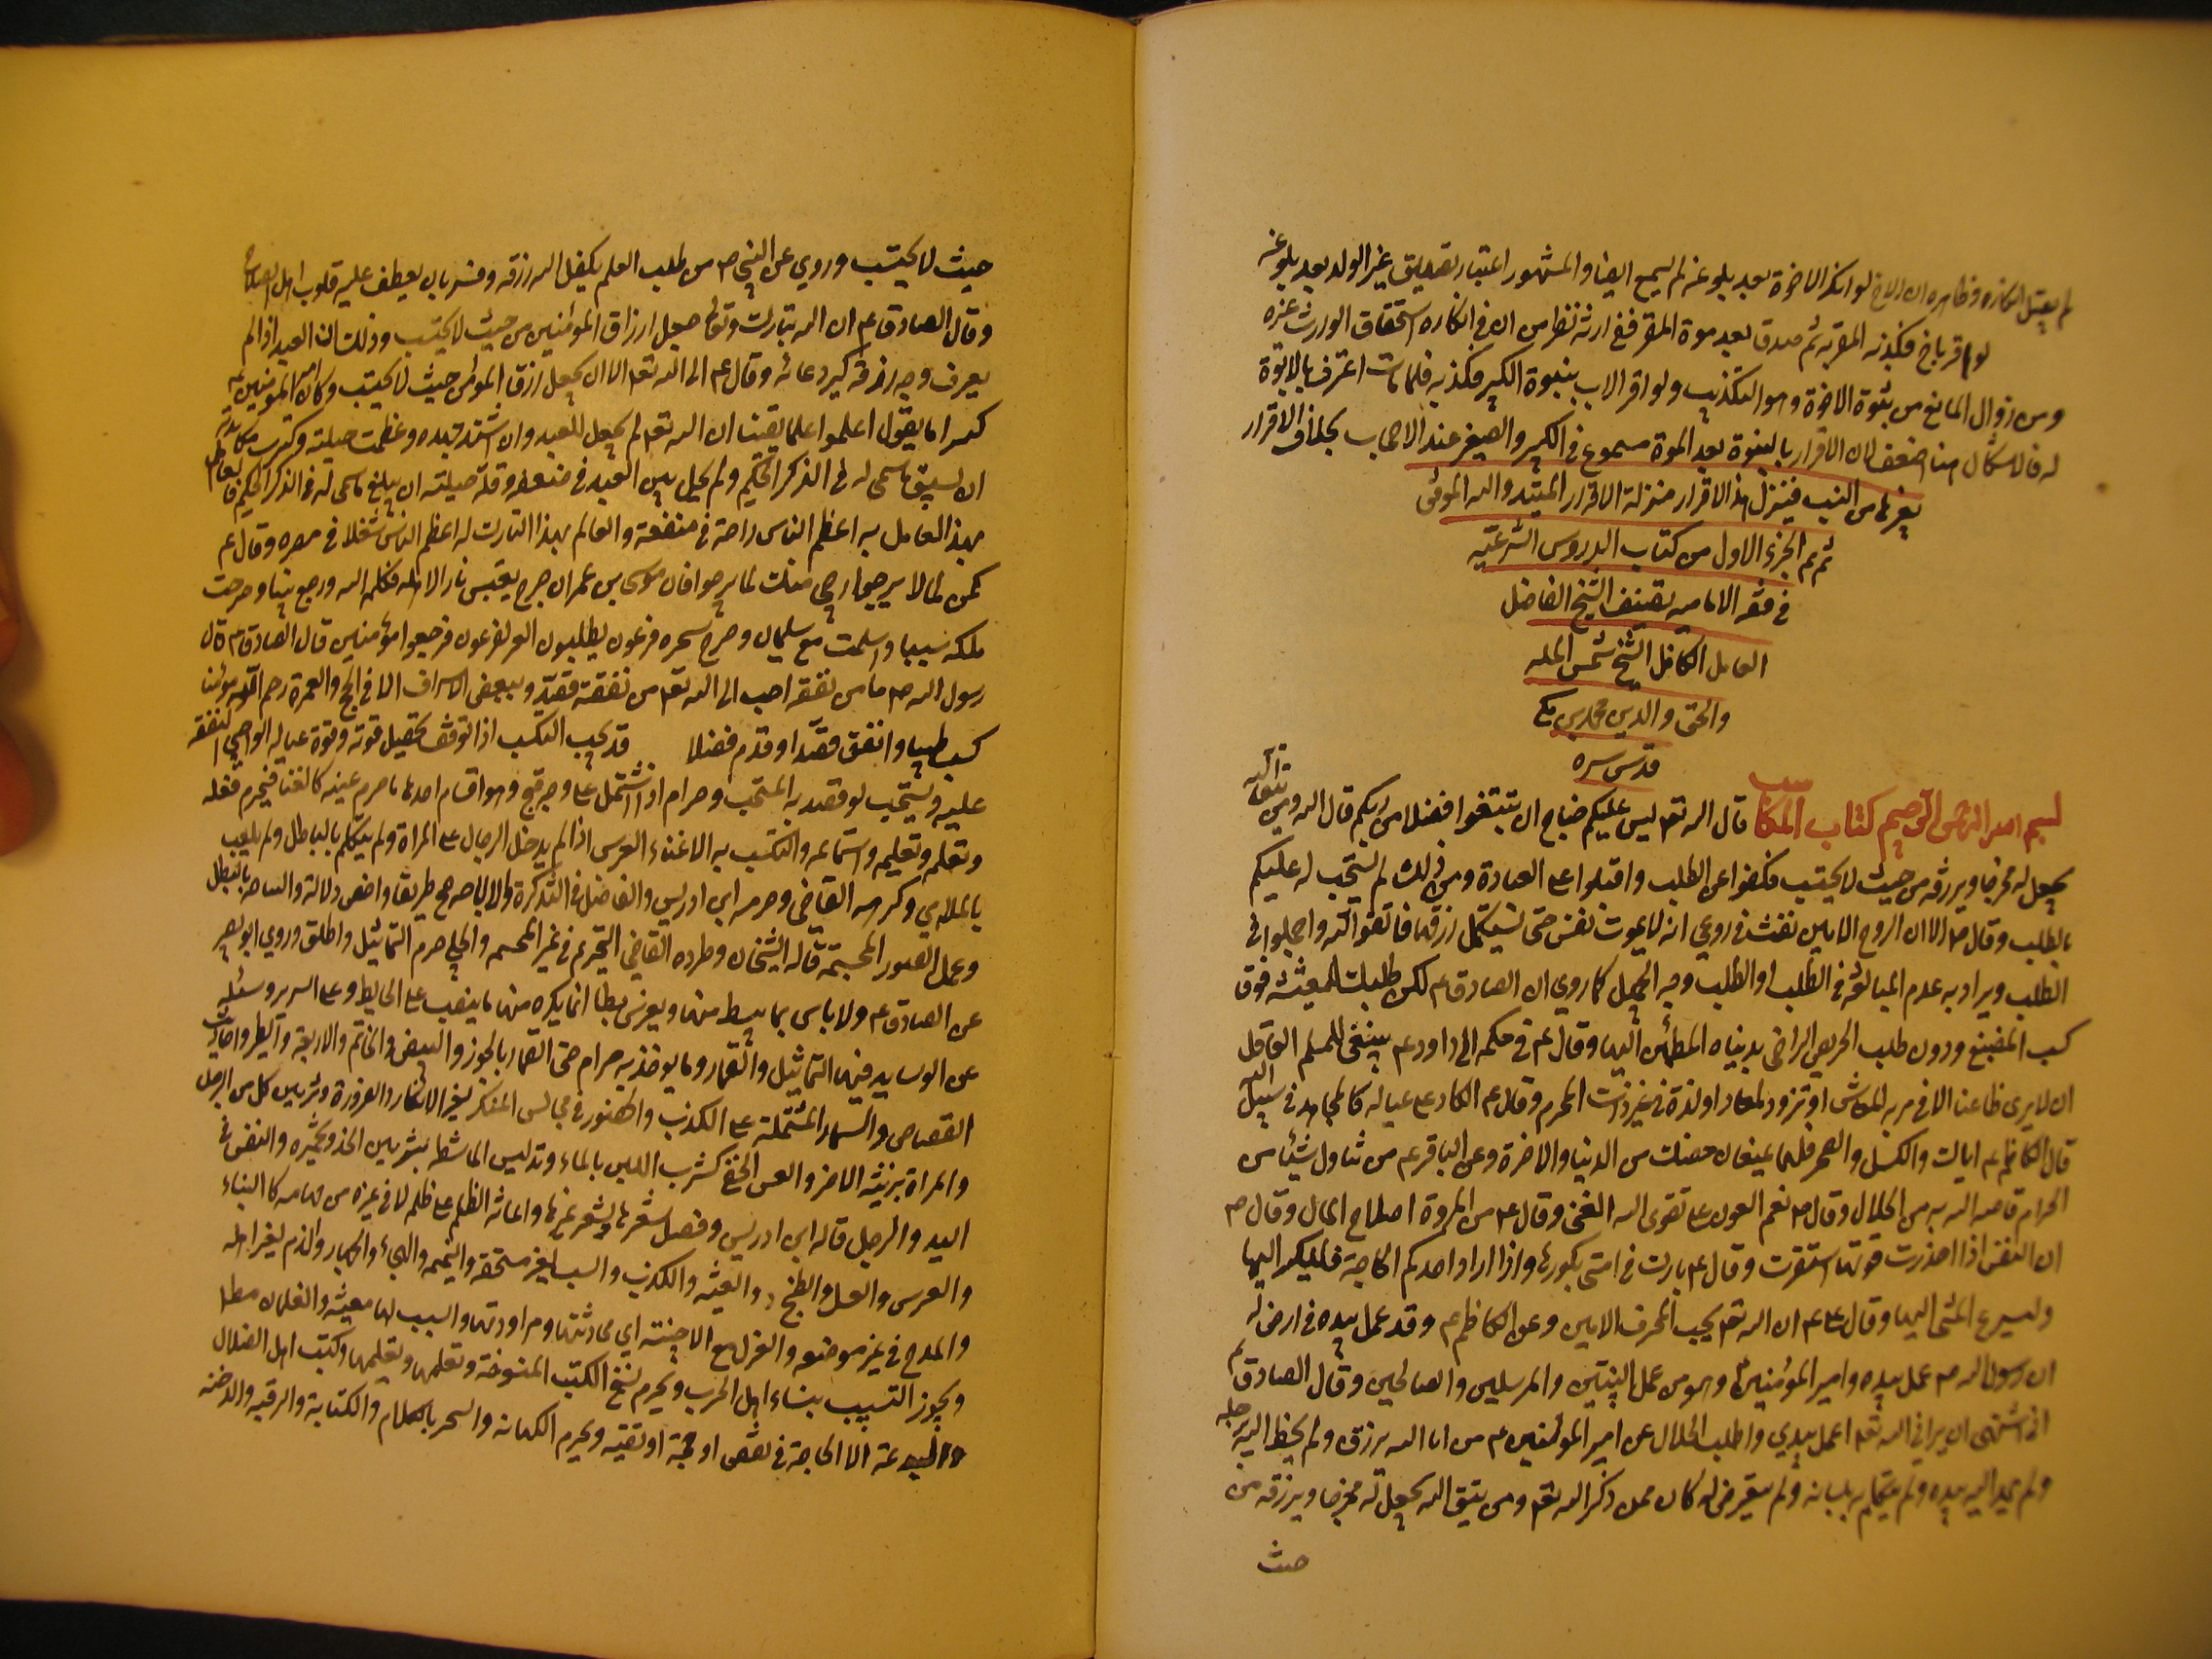 لم يعتبر انكاره وظاهره ان الاخ لو انكر الاخوة بعد بلوغه لم يسمع ايضا والمشهور اعتبار تصديق غير الولد بعد بلوغه
لو اقر باخ فكذبه المقر به ثم صدق بعد موة المقر ففي ارثه نظر من ان في انكاره استحقاق الوارث غيره
ومن زوال المانع من ثبوة الاخوة وهو التكذيب ولو اقر الاب ببنوة الكبير فكذبه فلما مات اعترف بالابوة
له فالاشكال هنا اضعف لان الاقرار بالبنوة بعد الموة مسموع في الكبير والصغير عند الاصحاب بخلاف الاقرار
بغيرها من النسب فينزل هذا الاقرار منزلة الاقرار المبتدء والله الموفق
ثم تم الجزء الاول من كتاب الدروس الشرعيّه
في فقه الاماميه تصنيف الشيخ الفاضل
العامل الكامل الشيخ شمس المله
والحق والدين محمد بن مكي
قدس سره
بسم الله الرحمن الرحيم كتاب المكاسب قال الله تعه ليس عليكم جناح ان تبتغوا فضلا من ربكم قال الله ومن يتق الله
يجعل له مخرجا ويرزقه من حيث لا يحتسب فكفوا عن الطلب واقبلوا على العبادة ومن ذلك لم يستجب له عليكم
بالطلب وقال ص الا ان الروح الامين نفث في روعي انه لا يموت نفس حتى تستكمل رزقها فاتقوا الله واجملوا في
الطلب ويراد به عدم المبالغة في الطلب او الطلب وجه الجميل كما روي ان الصادق عم لكن طلبك للمعيشة فوق
كسب المضيع ودون طلب الحريص الراضي بدنياه المطمئن اليها وقال عم في حكمه الى داود عم ينبغي للمسلم العاقل
ان لا يرى ظاعنا الا في مرمة لمعاش او تزود لمعاد او لذة في غير ذات المحرم وقال عم الكاد على عياله كالمجاهد في سبيل الله
قال الكاظم عم اياك والكسل والضجر فانهما يمنعان حضك من الدنيا والاخرة وعن الباقر عم من تناول شيئا من
الحرام قاصه الله به من الحلال وقال ص نعم العون على تقوى الله الغنى وقال عم من المروة اصلاح المال وقال ص
ان النفس اذا احذرت قوتها استقرت وقال عم بارك في امتي بكورها واذا اراد احدكم الحاجة فليبكر اليها
وليسرع المشي اليها وقال علي عم ان الله تعه يحب المحرف الامين وعن الكاظم عم وقد عمل بيده في ارض له
ان رسول الله ص عمل بيده وامير المؤمنين وهو من عمل النبيين والمرسلين والصالحين وقال الصادق عم
اني اشتهى ان يراني الله تعه اعمل بيدي واطلب الحلال عن امير المؤمنين عم من اتاه الله برزق ولم يخط اليه برجله
ولم يمد اليه بيده ولم يتكلم به بلسانه ولم يتعرض له كان ممن ذكر الله تعه ومن يتق الله يجعل له مخرجا ويرزقه من
حيث
حيث لا يحتسب وروي عن النبي ص من طلب العلم يكفل الله رزقه وفسر بان يعطف عليه قلوب اهل الصلاح
وقال الصادق عم ان الله تبارك وتعالى جعل ارزاق المؤمنين من حيث لا يحتسب وذلك ان العبد اذا لم
يعرف وجه رزقه كثر دعائه وقال عم الى الله تعه الا ان يجعل رزق المؤمن حيث لا يحتسب وكان امير المؤمنين عم
كثيرا ما يقول اعلموا علما يقينا ان الله تعه لم يجعل للعبد وان اشتد جهده وعظمت حيلته وكثرت مكايدته
ان يسبق ما سمى له في الذكر الحكيم ولم يحل بين العبد في ضعفه وقلة حيلته ان يبلغ ما سمى له في الذكر الحكيم فالعالم
بهذا العامل به اعظم الناس راحة في منفعة والعالم بهذا التارك له اعظم الناس شغلا في مضره وقال عم
كمن لما لا يرجو ارجى منك لما يرجوا فان موسى بن عمران خرج يقتبس نار الاهله فكلمه الله ورجع نبيا وخرجت
ملكه سببا واسلمت مع سليمان وخرج سحره فرعون يطلبون العز لفرعون فرجعوا مؤمنين قال الصادق عم قال
رسول الله ص ما من نفقة احب الى الله تعه من نفقة قصد ويبغض الاسراف الا في الحج والعمرة رحم الله مؤمنا
كسب طيبا وانفق قصدا وقدم فضلا قد يجب التكسب اذا توقف تحصيل قوته وقوة عياله الواجبي النفقه
عليه ويستحب لو قصد به المستحب وحرام اذا اشتمل على وجه قبح وهو اقسام احدها ما حرم عينه كالغنا فيحرم فعله
وتعلمه وتعليمه واستماعه والتكسب به الا غناء العرس اذا لم يدخل الرجال على المراة ولم يتكلم بالباطل ولم يلعب
بالملاهي وكرهه القاضي وحرمه ابن ادريس والفاضل في التذكرة والاباحه اصح طريقا واخص دلالة والنياحه بالباطل
وعمل الصور المجسمة قاله الشيخان وطرده القاضي التحريم في غير المجسم والحلي حرم التماثيل واطلق وروي ابو بصير
عن الصادق عم ولا باس بما يبسط منها ويفرش ويطا انما يكره منها ما ينصب على الحايط وعلى السرير وسئله
عن الوسايد فيها التماثيل والقمار وما يوخذ به حرام حتى القمار بالجوز والبيض والخاتم والاربعة والطير واحاديث
القصاص والسمار المشتملة على الكذب والحضور في مجالس المنكر لغير الانكار والضرورة وتزيين كل من الرجل
والمراة بزينة الاخر والغش الخفي كشرب اللبن بالماء وتدليس الماشطه بتزيين الخد وتحميره والنقش في
اليد والرجل قاله ابن ادريس ووصل شعرها بشعر غيرها واعانة الظلم على ظلم لا في غيره من مهامه كالبناء
والعرس والغسل والطبخ والغيبة والكذب والسب لغير مستحقه والنميمه والهجاء والهجار والذم لغير اهله
والمدح في غير موضعه والغزل مع الاجنبية اي محادثتها ومراودتها والسبب لها معينة والغلمان مطلقا
ويجوز التشبيب بنساء اهل الحرب ويحرم نسخ الكتب المنسوخة وتعلمها وتعليمها وكتب اهل الضلال
والبدعة الا الحاجة في نقض او حجة او تقيه ويحرم الكهانه والسحر بالكلام والكتابة والرقيه والدخنه